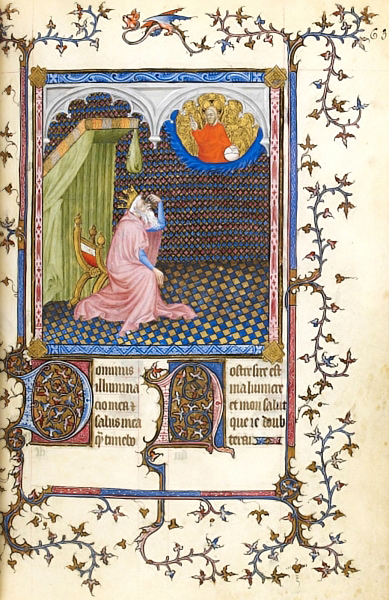 63
Dominus
illumina
cio mea &
salus mea
q̄ timebo
Nostre sire est
ma lumiere
et mon salut
que ie doub
terai